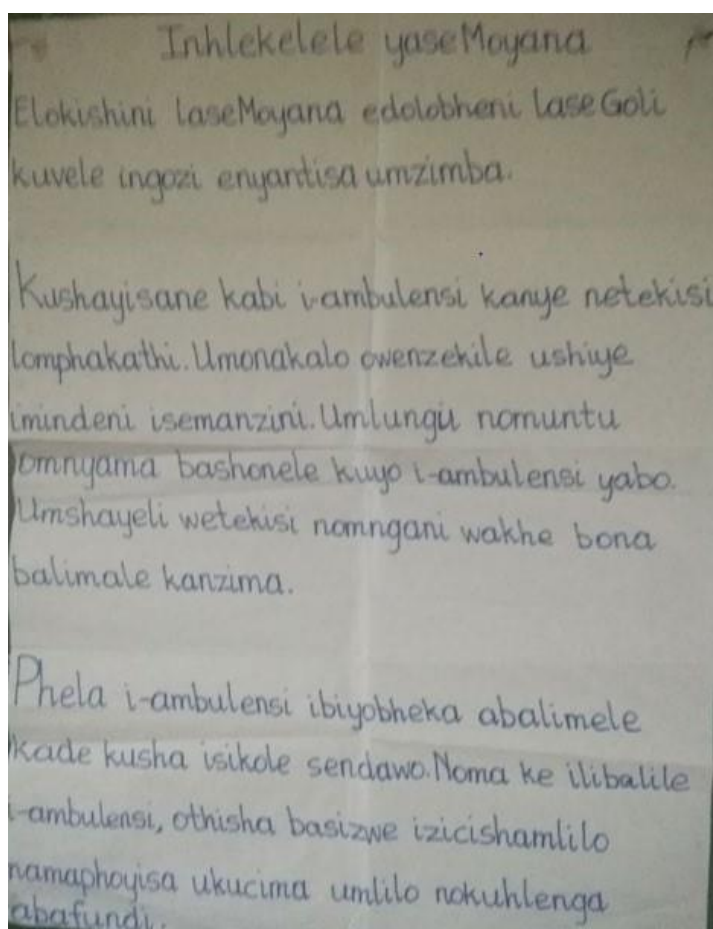 Inhlekelele yaseMoyana
Elokishini laseMoyana edolobheni laseGoli
kuvele ingozi enyantisa umzimba.
Kushayisane kabi i-ambulensi kanye netekisi
lomphakathi. Umonakalo owenzekile ushiye
imindeni isemanzini. Umlungu nomuntu
omnyama bashonele kuyo i-ambulensi yabo.
Umshayeli wetekisi nomngani wakhe bona
balimale kanzima.
Phela i-ambulensi ibiyobheka abalimele
kade kusha isikole sendawo. Noma ke ilibalile
i-ambulensi, othisha basizwe izicishamlilo
namaphoyisa ukucima umlilo nokuhlenga
abafundi.